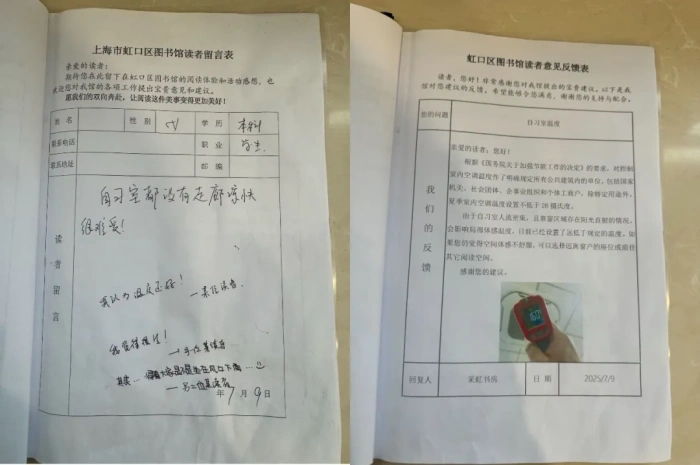 上海市虹口区图书馆读者留言表
亲爱的读者：
期待您在此留下在虹口区图书馆的阅读体验和活动感想，也
欢迎您对我馆的各项工作提出宝贵意见和建议。
愿我们的双向奔赴，让阅读这件美事变得更加美好！
姓 名 性 别 女 学 历 本科
联系电话 职 业 学生
联系地址 邮 编
读者留言
自习室都没有走廊凉快
很难受！
我认为温度还好！
—某位读者
我觉得挺好！
其实
年 7 月 9 日
虹口区图书馆读者意见反馈表
读者，您好！非常感谢您对我馆提出的宝贵建议。以下是我
馆对您建议的反馈，希望能够令您满意。谢谢您的支持与配合。
您的问题 自习室温度
我们的反馈
亲爱的读者：您好！
根据《国务院关于加强节能工作的决定》的要求，对控制
室内空调温度作了明确规定所有公共建筑内的单位，包括国家
机关、社会团体、企事业组织和个体工商户，除特定用途外，
夏季室内空调温度设置不低于 26 摄氏度。
由于自习室人流密集，且靠窗区域存在阳光直射的情况，
会影响局部体感温度，目前已经设置了远低于规定的温度。如
果您仍觉得空间体感不舒服，可以选择远离窗户的座位或前往
其它阅读空间。
感谢您的建议。
回复人 采虹书房 日 期 2025/7/9